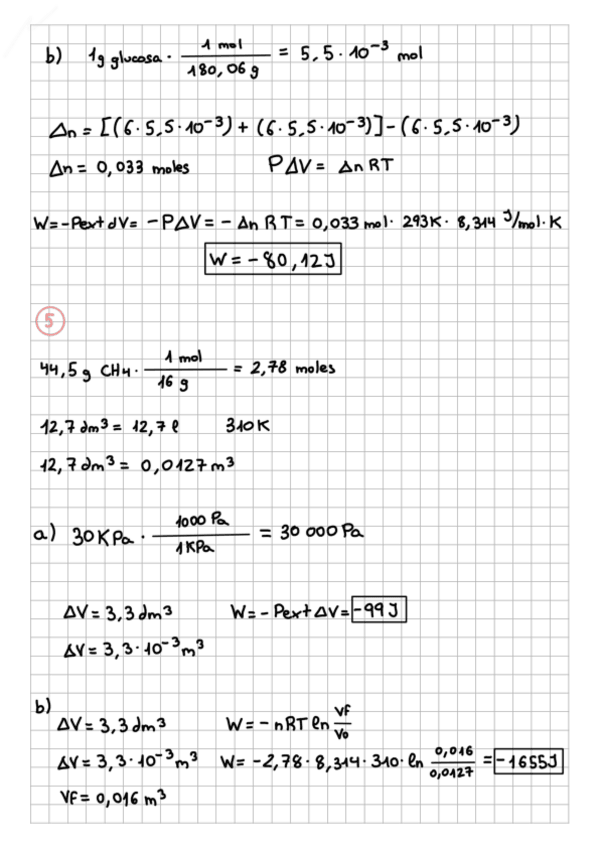 b) 1g glucosa · 1 mol / 180,06 g = 5,5 · 10⁻³ mol
Δn = [(6 · 5,5 · 10⁻³) + (6 · 5,5 · 10⁻³)] - (6 · 5,5 · 10⁻³)
Δn = 0,033 moles PΔV = Δn RT
W = -Pext dV = -PΔV = -Δn RT = 0,033 mol · 293K · 8,314 J/mol·K
W = -80,12J
5
44,5 g CH4 · 1 mol / 16 g = 2,78 moles
12,7 dm³ = 12,7 l 310K
12,7 dm³ = 0,0127 m³
a) 30KPa · 1000 Pa / 1 KPa = 30 000 Pa
ΔV = 3,3 dm³ W = -Pext ΔV = -99 J
ΔV = 3,3 · 10⁻³ m³
b)
ΔV = 3,3 dm³ W = -nRT ln Vf / Vo
ΔV = 3,3 · 10⁻³ m³ W = -2,78 · 8,314 · 310 · ln 0,016 / 0,0127 = -1655J
Vf = 0,016 m³